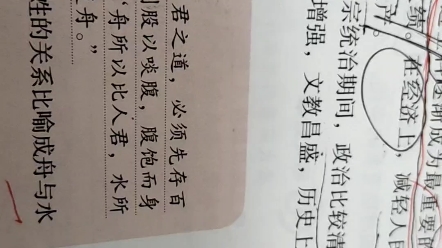 逐渐成为最重要的
产。在经济上，减轻人
宗统治期间，政治比较清
增强，文教昌盛，历史上
君之道，必须先存百
股以啖腹，腹饱而身
“舟所以比人君，水所
舟。”
性的关系比喻成舟与水